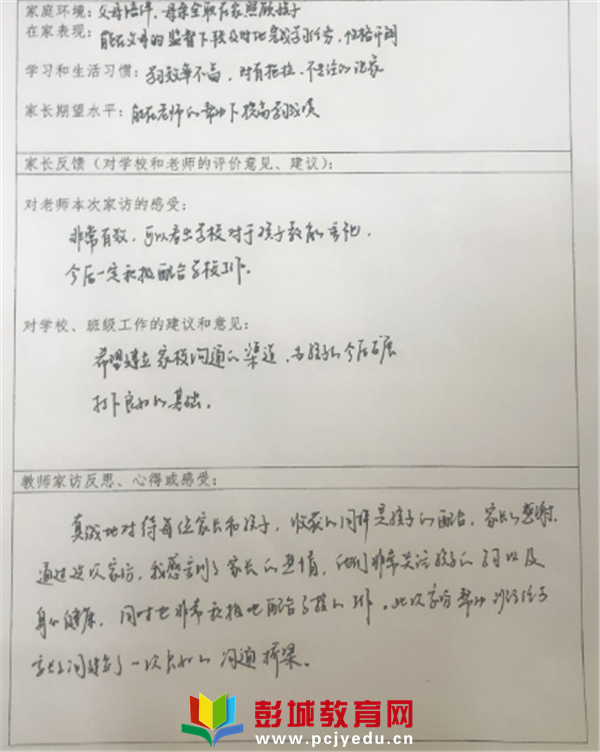 家庭环境：父母陪伴，母亲全职在家照顾孩子
在家表现：能在父母的监督下较及时地完成学习任务，性格开朗
学习和生活习惯：学习效率不高，对有拖拉，不专注的现象
家长期望水平：能在老师的帮助下提高学习成绩
家长反馈（对学校和老师的评价意见、建议）：
对老师本次家访的感受：
非常有效，可以看出学校对于孩子教育的重视，
今后一定积极配合学校工作。
对学校、班级工作的建议和意见：
希望建立家校沟通的渠道，为孩子的今后发展
打下良好的基础。
教师家访反思、心得或感受：
真诚地对待每位家长和孩子，收获的同样是孩子的配合，家长的感谢。
通过这次家访，我感受到了家长的热情，他们非常关注孩子的学习以及
身心健康，同时也非常积极地配合学校的工作，此次家访帮助
家长间建立了一次良好的沟通桥梁。
彭城教育网
www.pcjyedu.cn